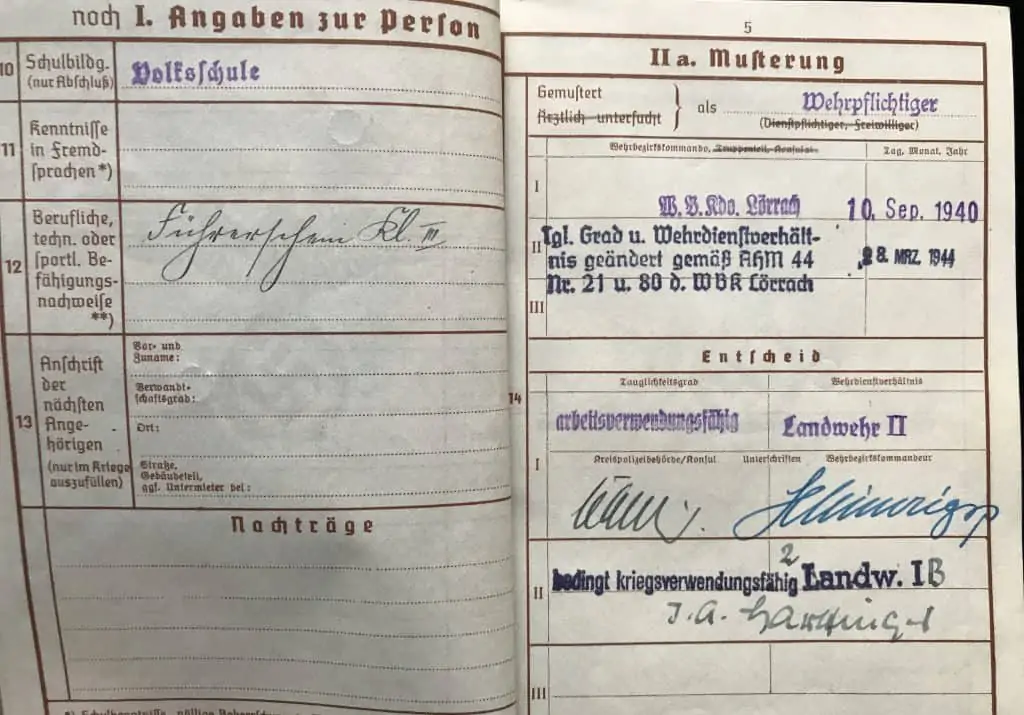 noch I. Angaben zur Person
10 Schulbildg.
(nur Abschluß)
Volksschule
11 Kenntnisse
in Fremd-
sprachen*)
12 Berufliche,
techn. oder
sportl. Be-
fähigungs-
nachweise
**)
Führerschein Kl. III
13 Anschrift
der
nächsten
Ange-
hörigen
(nur im Kriege
auszufüllen)
Vor- und
Zuname:
Verwandt-
schaftsgrad:
Ort:
Straße,
Gebäudeteil,
ggf. Untermieter bei:
Nachträge
5
II a. Musterung
Gemustert
Ärztlich untersucht
als Wehrpflichtiger
(Dienstpflichtiger, Freiwilliger)
Wehrbezirkskommando, Truppenteil, Konsulat
Tag, Monat, Jahr
I
W. B. Kdo. Lörrach 10. Sep. 1940
II Tgl. Grad u. Wehrdienstverhält-
nis geändert gemäß AHM 44 28. MRZ. 1944
Nr. 21 u. 80 d. WBK Lörrach
III
Entscheid
14
Tauglichkeitsgrad Wehrdienstverhältnis
arbeitsverwendungsfähig Landwehr II
I
Kreispolizeibehörde/Konsul Unterschriften Wehrbezirkskommandeur
2
II bedingt kriegsverwendungsfähig Landw. I B
J. A.
III